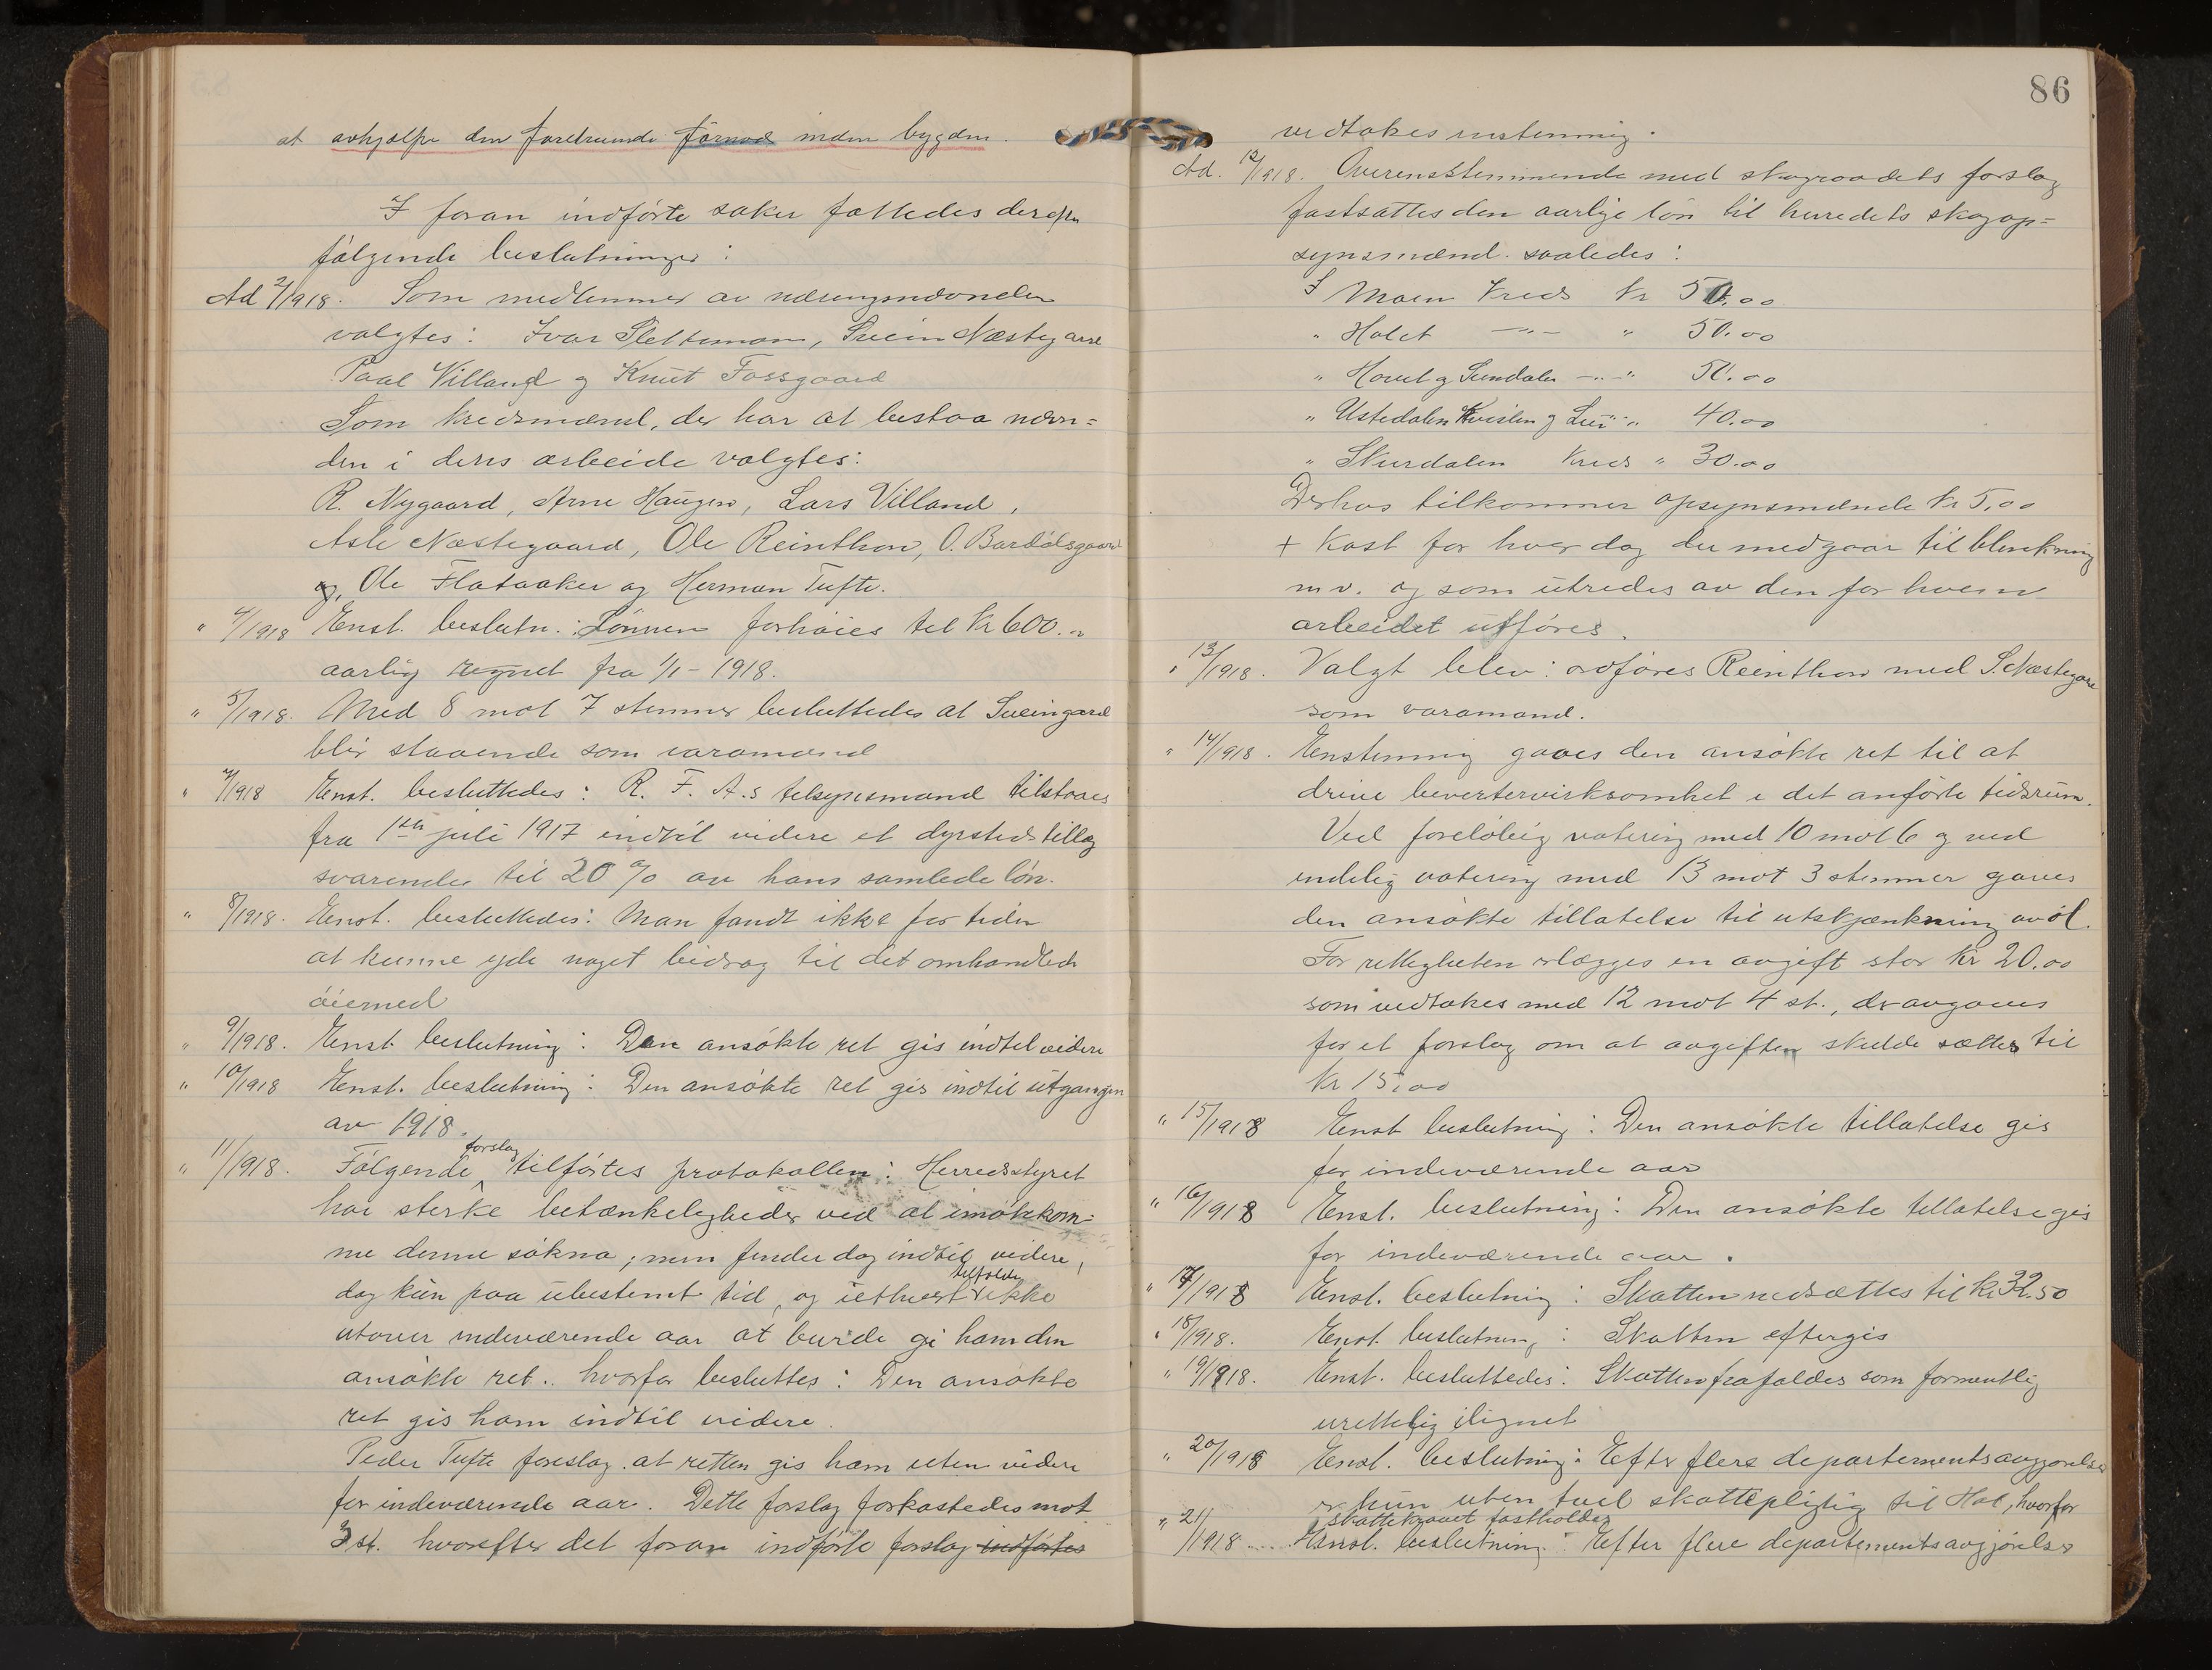 at avhjælpe den forekommende fôrnød inden bygden.
I foran indførte saker fattedes derefter
følgende beslutninger:
Ad 2/1918. Som medlemmer av næringsnævnden
valgtes: Ivar Slettemoen, Svein Næstegaard
Paal Villand og Knut Fossgaard
Som kredsmænd, der har at bistaa nævn=
den i dens arbeide valgtes:
R. Nygaard, Arne Haugen, Lars Villand,
Asle Næstegaard, Ole Reinthon, O. Bardølsgaard
og, Ole Flataaker og Herman Tufte.
" 4/1918 Enst. beslutn.: Lønnen forhøies til Kr 600.-
aarlig regnet fra 1/1 - 1918.
" 5/1918. Med 8 mot 7 stemmer besluttedes at Sveingard
blir staaende som varamand
" 7/1918 Enst. besluttedes: R. F. A.s tilsynsmand tilstaaes
fra 1ste juli 1917 indtil videre et dyrtidstillæg
svarende til 20 % av hans samlede løn.
" 8/1918. Enst. besluttedes: Man fandt ikke for tiden
at kunne yde noget bidrag til det omhandlede
øiemed
" 9/1918. Enst. beslutning: Den ansøkte ret gis indtil videre
" 10/1918 Enst. beslutning: Den ansøkte ret gis indtil utgangen
av 1918.
" 11/1918. Følgende forslag tilførtes protokollen: Herredsstyret
har sterke betænkeligheder ved at imøtekom=
me denne søknad; men finder dog indtil videre,
dog kun paa ubestemt tid, og i ethvert tilfælde ikke
utover indeværende aar at burde gi ham den
ansøkte ret.. hvorfor besluttes: Den ansøkte
ret gis ham indtil videre.
Peder Tufte foreslog at retten gis ham uten videre
for indeværende aar. Dette forslag forkastedes mot
3 st. hvorefter det foran indførte forslag indførtes
86
vedtokes enstemmig.
Ad. 12/1918. Overensstemmende med skograadets forslag
fastsattes den aarlige løn til herredets skogop=
synsmænd saaledes:
I Moen Kreds Kr 50.00
" Holet —"— " 50.00
" Hovet og Sundalen —"— " 50.00
" Ustedalen Kvislen og Lii " " 40.00
" Skurdalen Kreds " 30.00
Derhos tilkommer opsynsmændene Kr 5.00
+ Kost for hver dag der medgaar til blinkning
m.v. og som utredes av den for hvem
arbeidet utføres.
" 13/1918. Valgt blev: ordfører Reinthon med S. Næstegard
som varamand.
" 14/1918. Enstemmig gaves den ansøkte ret til at
drive bevertervirksomhet i det anførte tidsrum.
Ved foreløbig votering med 10 mot 6 og ved
endelig votering med 13 mot 3 stemmer gaves
den ansøkte tillatelse til utskjænkning av øl.
For rettigheten erlægges en avgift stor Kr 20.00
som vedtokes med 12 mot 4 st., der avgaves
for et forslag om at avgiften skulde sættes til
Kr 15.00
" 15/1918 Enst beslutning: Den ansøkte tillatelse gis
for indeværende aar
" 16/1918 Enst. beslutning: Den ansøkte tillatelse gis
for indeværende aar.
" 17/1918 Enst. beslutning: Skatten nedsættes til Kr 32.50
" 18/1918. Enst. beslutning: Skatten eftergis
" 19/1918. Enst. besluttedes: Skatten frafaldes som formentlig
urettelig ilignet
" 20/1918 Enst. beslutning: Efter flere departementsavgjørelser
er hun uten tvil skattepligtig til Hol, hvorfor
skattekravet fastholdes
" 21/1918 .... Enst. beslutning: Efter flere departementsavgjørelser